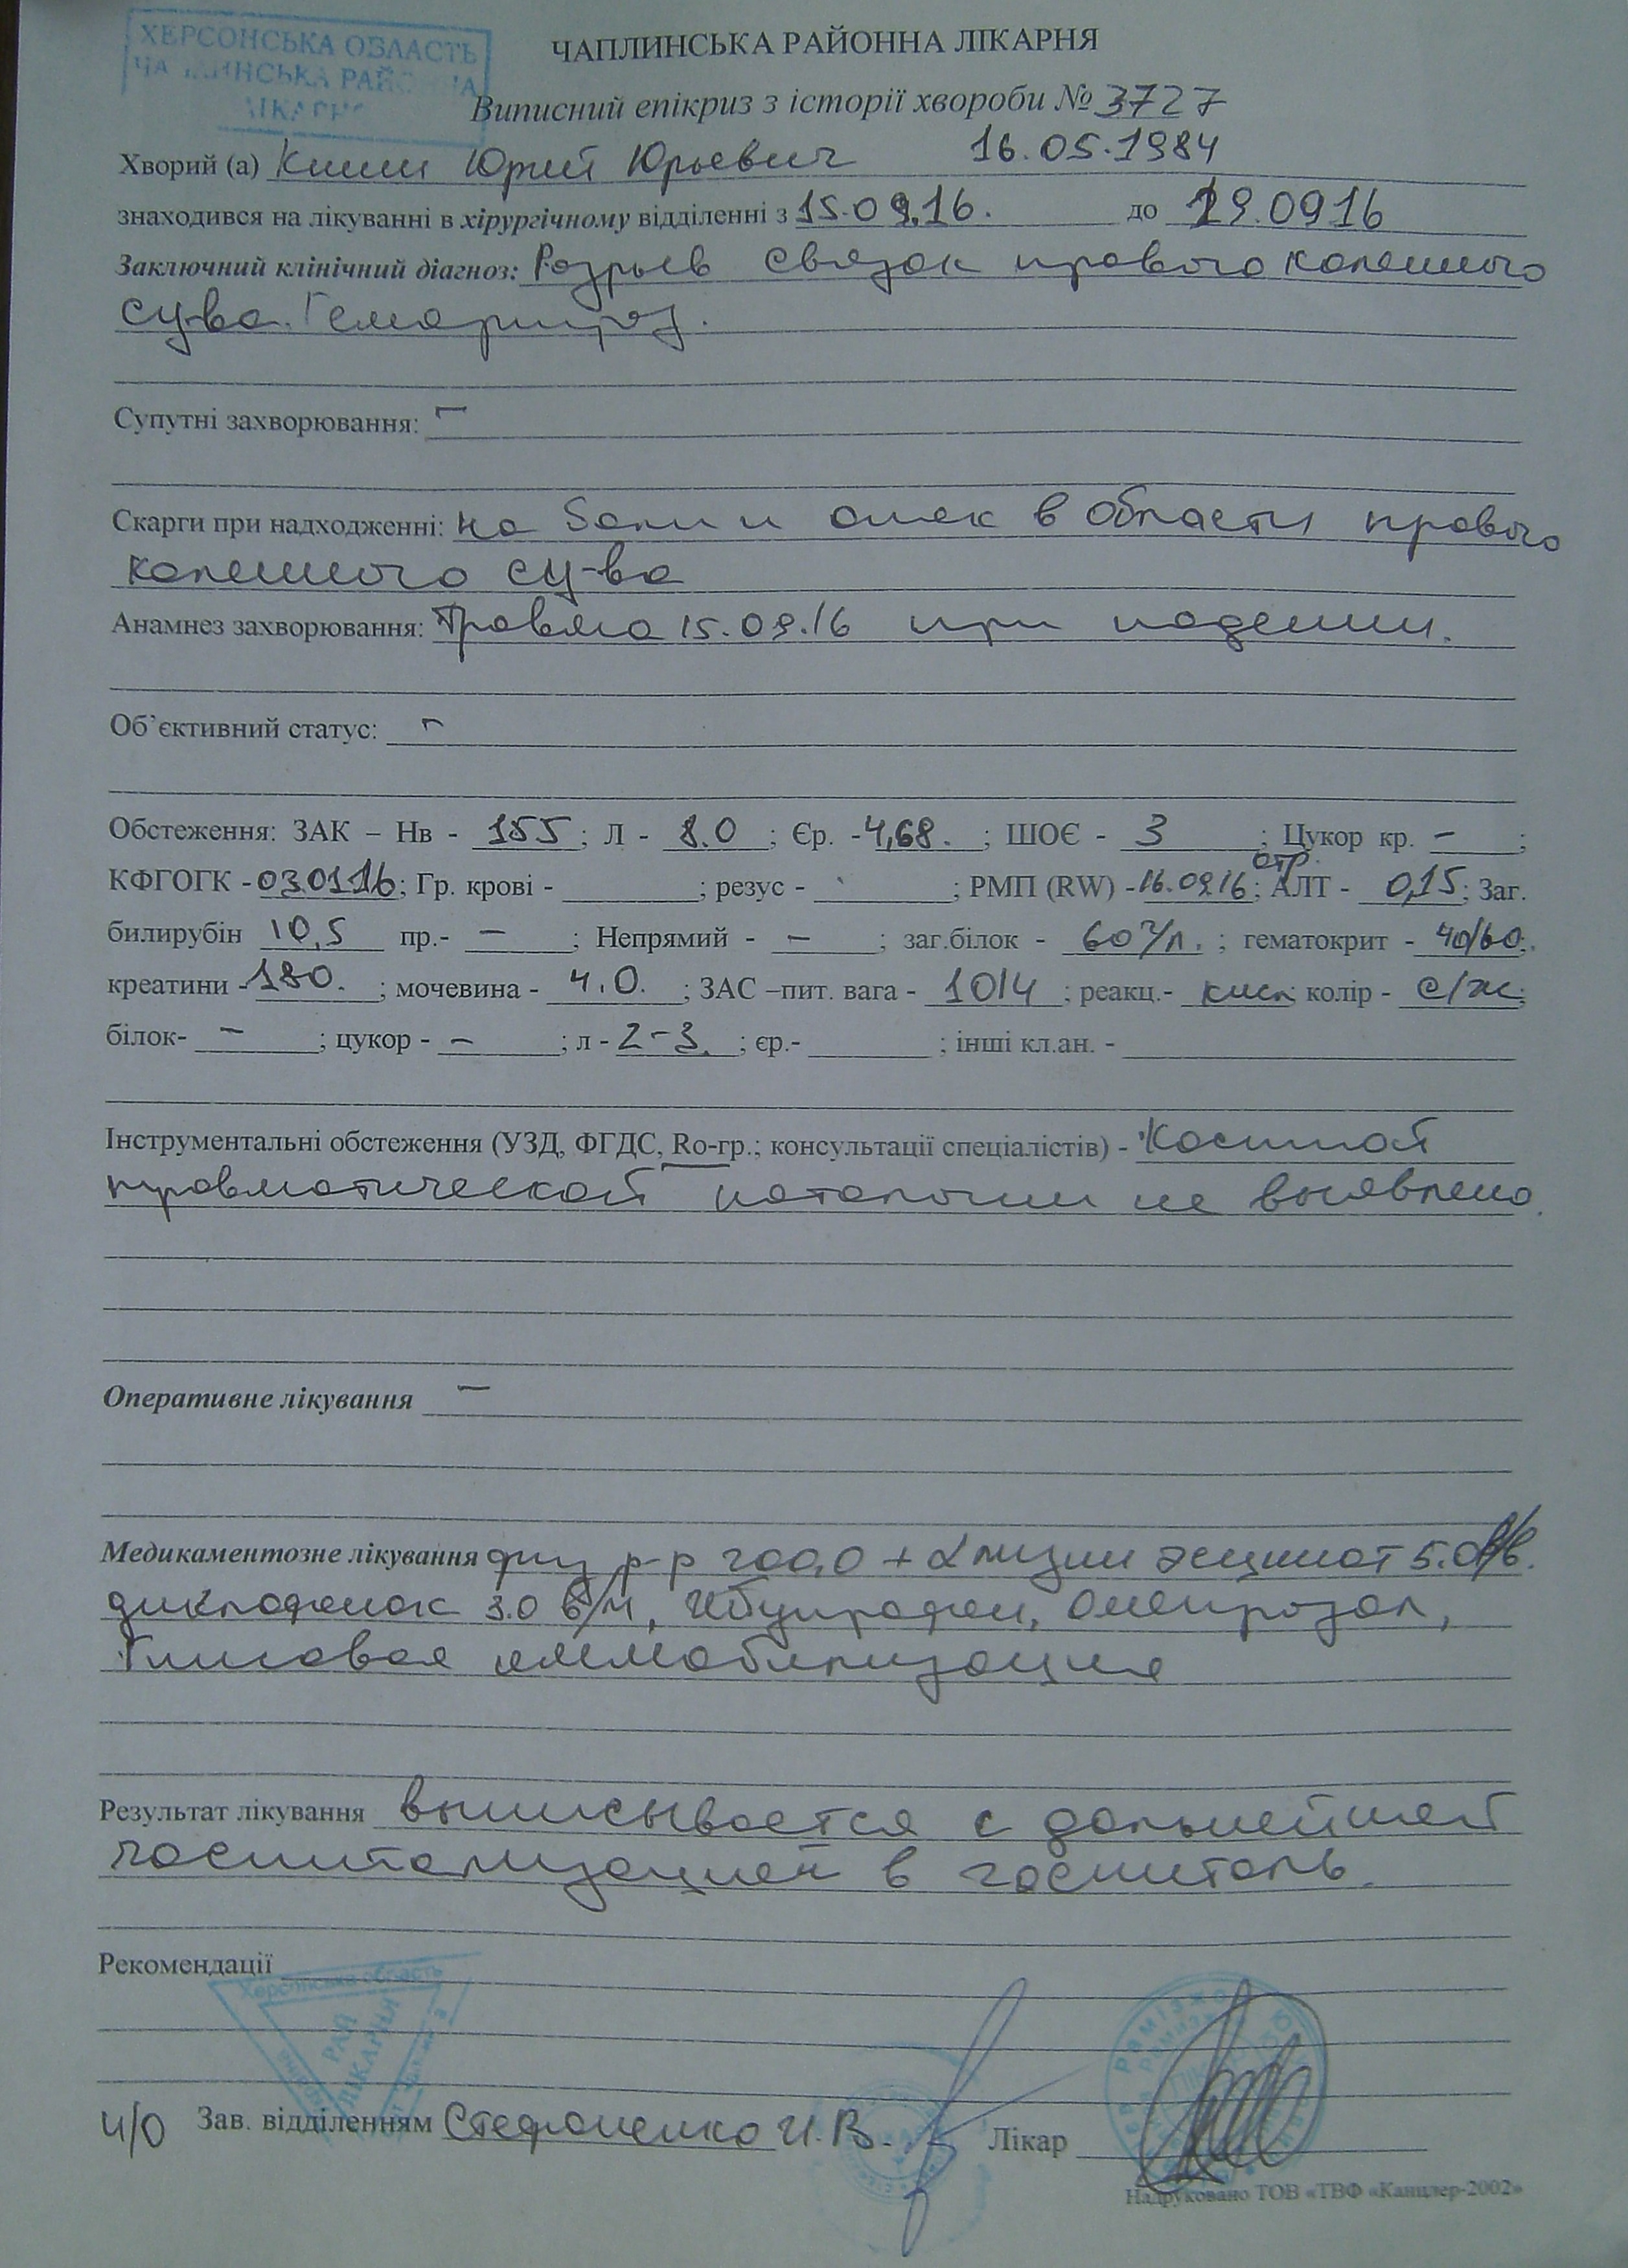 ХЕРСОНСЬКА ОБЛАСТЬ
ЧАПЛИНСЬКА РАЙОННА
ЛІКАРНЯ
ЧАПЛИНСЬКА РАЙОННА ЛІКАРНЯ
Виписний епікриз з історії хвороби № 3727
Хворий (а) Юрий Юрьевич 16.05.1984
знаходився на лікуванні в хірургічному відділенні з 15.09.16. до 19.0916
Заключний клінічний діагноз: Разрыв связок правого коленного
су-ва. Гемартроз.
Супутні захворювання: –
Скарги при надходженні: на боли и отек в области правого
коленного су-ва
Анамнез захворювання: Травма 15.09.16 при падении.
Об’єктивний статус: –
Обстеження: ЗАК – Нв - 155 ; Л - 8.0 ; Єр. - 4,68. ; ШОЄ - 3 ; Цукор кр. – ;
КФГОГК - 030116; Гр. крові - ; резус - ; РМП (RW) - 16.0916 отр. ; АЛТ - 0,15; Заг.
билирубін 10,5 пр.- – ; Непрямий - – ; заг.білок - 60 г/л. ; гематокрит - 40/60;
креатини - 180. ; мочевина - 4.0. ; ЗАС –пит. вага - 1014 ; реакц.- кисл; колір - с/ж;
білок- – ; цукор - – ; л - 2-3. ; єр.- ; інші кл.ан. -
Інструментальні обстеження (УЗД, ФГДС, Ro-гр.; консультації спеціалістів) - Костной
травматической патологии не выявлено.
Оперативне лікування –
Медикаментозне лікування физ р-р 200,0 + L лизин эсцинат 5.0 в/в.
диклофенак 3.0 в/м, Ибупрофен, Омепразол,
Гипсовая иммобилизация
Результат лікування выписывается с дальнейшей
госпитализацией в госпиталь.
Рекомендації
Херсонська область
РАЙ
ЛІКАРНЯ
И/О Зав. відділенням Стефаненко И.В. Лікар
Надруковано ТОВ «ТВФ «Канцлер-2002»